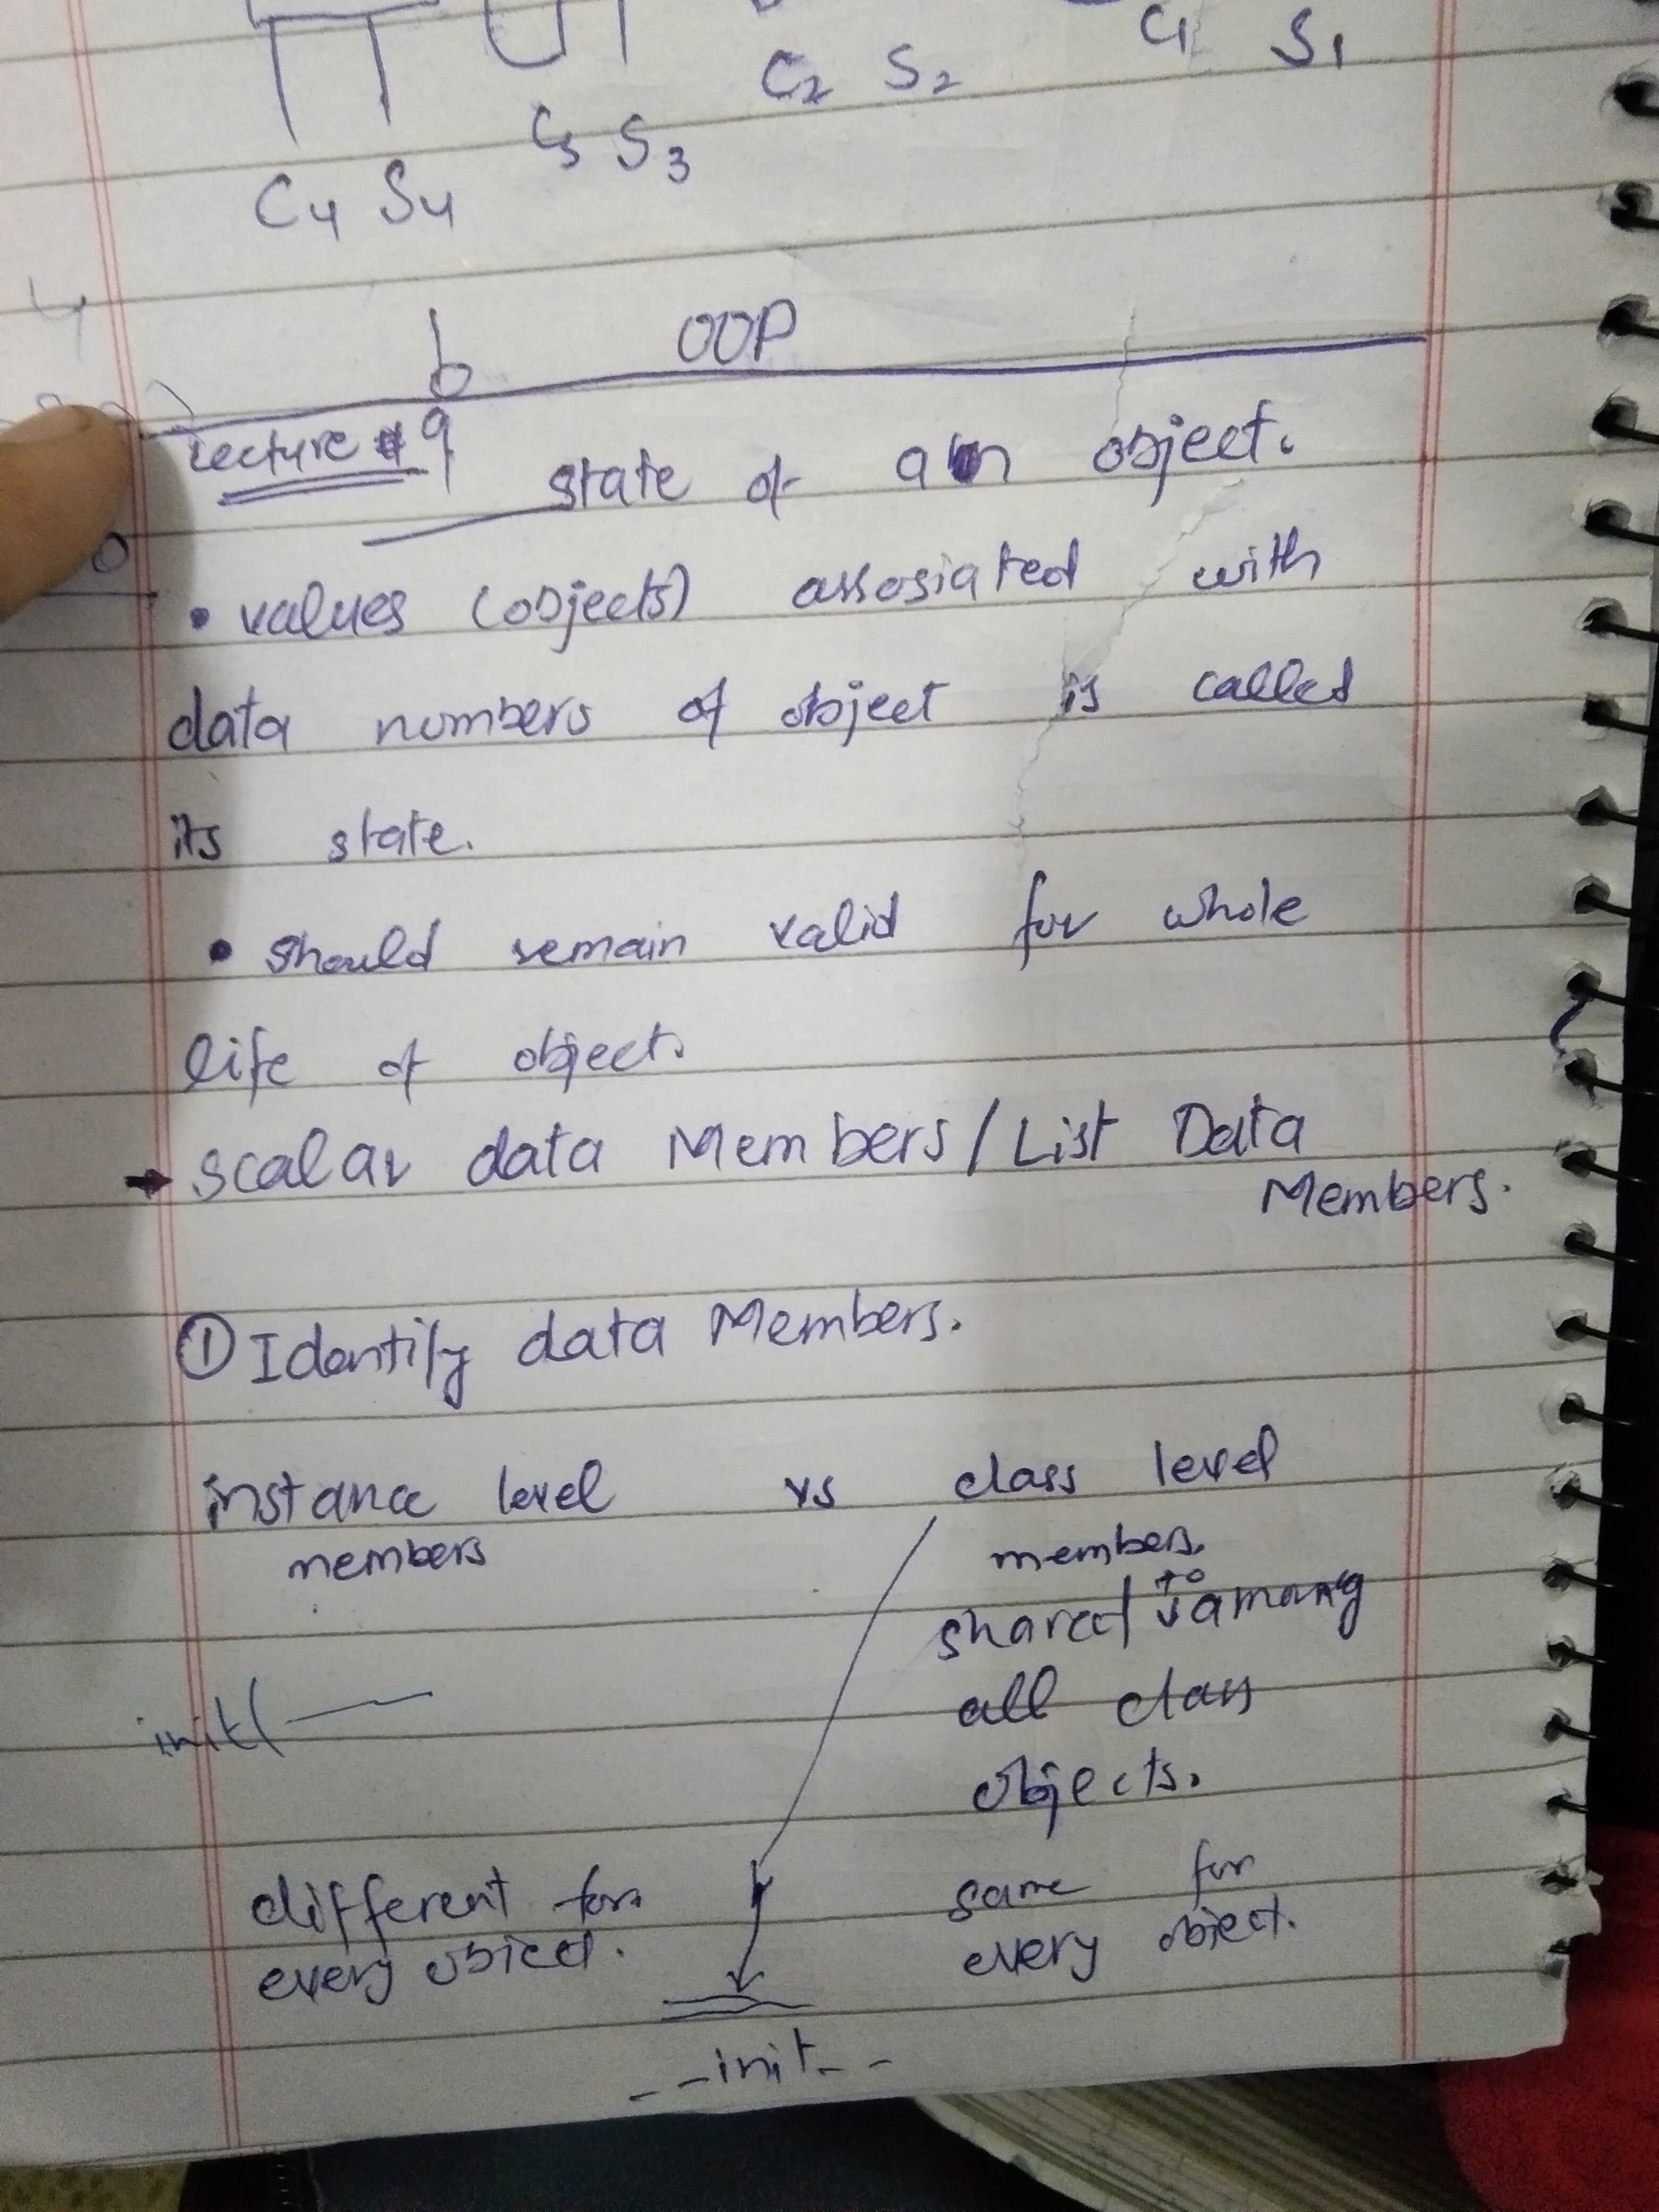 C1 S1
C2 S2
C3 S3
C4 S4
OOP
Lecture # 9
state of an object.
• values (objects) assosiated with
data numbers of object is called
its state.
• should remain valid for whole
life of object.
→ scalar data Members / List Data
Members.
① Identify data Members.
instance level vs class level
members members.
shared to among
all class
objects.
init(
different for same for
every object. every object.
__init__